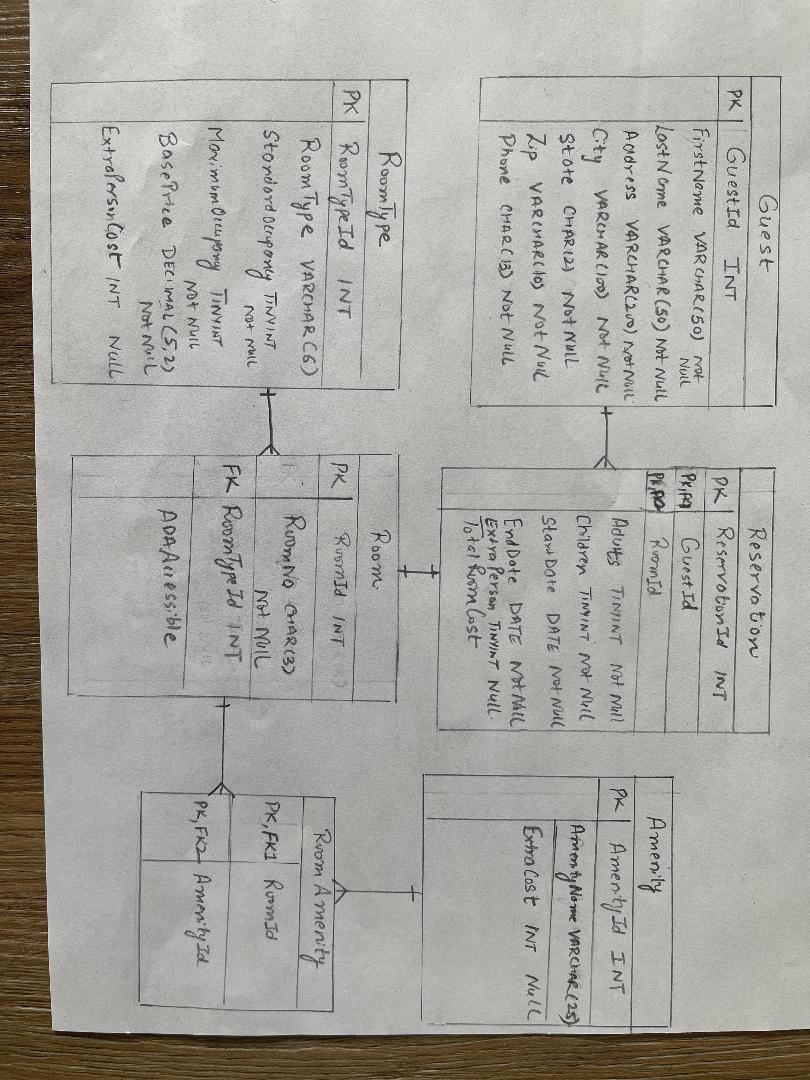 Guest
PK GuestId INT
FirstName VARCHAR(50) Not
Null
LastName VARCHAR(50) Not Null
Address VARCHAR(200) Not Null
City VARCHAR(100) Not Null
State CHAR(2) Not Null
Zip VARCHAR(10) Not Null
Phone CHAR(13) Not Null
Reservation
PK ReservationId INT
PK,FK1 GuestId
PK,FK2 RoomId
Adults TINYINT Not Null
Children TINYINT Not Null
StartDate DATE Not Null
EndDate DATE Not Null
ExtraPerson TINYINT Null
TotalRoomCost
Amenity
PK AmenityId INT
AmenityName VARCHAR(25)
ExtraCost INT Null
RoomType
PK RoomTypeId INT
RoomType VARCHAR(6)
StandardOccupancy TINYINT
Not Null
MaximumOccupany TINYINT
Not Null
BasePrice DECIMAL(5,2)
Not Null
ExtraPersonCost INT Null
Room
PK RoomId INT
RoomNo CHAR(3)
Not Null
FK RoomTypeId INT
ADAAccessible
Room Amenity
PK,FK1 RoomId
PK,FK2 AmenityId